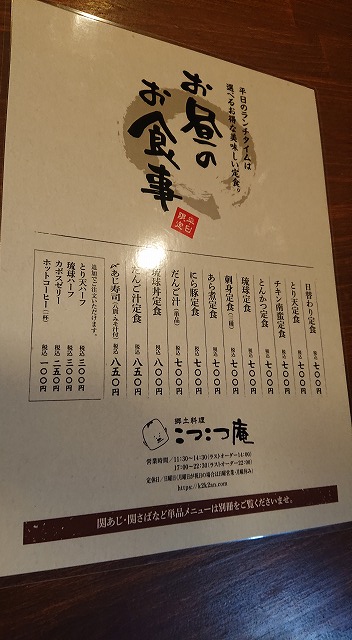 平日のランチタイムは
選べるお得な美味しい定食。
お昼の
お食事
平日
限定
日替わり定食 税込 七〇〇円
とり天定食 税込 七〇〇円
チキン南蛮定食 税込 七〇〇円
とんかつ定食 税込 七〇〇円
琉球定食 税込 七〇〇円
刺身定食(三種) 税込 七〇〇円
あら煮定食 税込 七〇〇円
にら豚定食 税込 七〇〇円
だんご汁(単品) 税込 七〇〇円
琉球丼定食 税込 八〇〇円
だんご汁定食 税込 八五〇円
〆あじ寿司(八個・みそ汁付) 税込 八五〇円
追加でご注文いただけます。
とり天ハーフ 税込 三〇〇円
琉球ハーフ 税込 三〇〇円
カボスゼリー 税込 二五〇円
ホットコーヒー(一杯) 税込 一〇〇円
郷土料理
こつこつ庵
営業時間/11:30〜14:30(ラストオーダー14:00)
17:00〜22:30(ラストオーダー22:00)
定休日/日曜日(月曜日が祝日の場合は日曜営業・月曜休み)
https://k2k2an.com
関あじ・関さばなど単品メニューは別冊をご覧くださいませ。